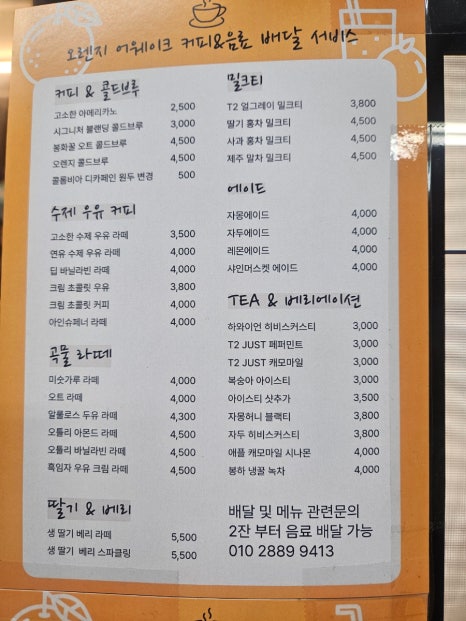 오렌지 어웨이크 커피&음료 배달 서비스
커피 & 콜드브루
고소한 아메리카노 2,500
시그니처 블랜딩 콜드브루 3,000
봉화꿀 오트 콜드브루 4,500
오렌지 콜드브루 4,500
콜롬비아 디카페인 원두 변경 500
수제 우유 커피
고소한 수제 우유 라떼 3,500
연유 수제 우유 라떼 4,000
딥 바닐라빈 라떼 4,000
크림 초콜릿 우유 3,800
크림 초콜릿 커피 4,000
아인슈페너 라떼 4,000
곡물 라떼
미숫가루 라떼 4,000
오트 라떼 4,000
알룰로스 두유 라떼 4,300
오틀리 아몬드 라떼 4,500
오틀리 바닐라빈 라떼 4,500
흑임자 우유 크림 라떼 4,500
딸기 & 베리
생 딸기 베리 라떼 5,500
생 딸기 베리 스파클링 5,500
밀크티
T2 얼그레이 밀크티 3,800
딸기 홍차 밀크티 4,500
사과 홍차 밀크티 4,500
제주 말차 밀크티 4,500
에이드
자몽에이드 4,000
자두에이드 4,000
레몬에이드 4,000
샤인머스켓 에이드 4,000
TEA & 베리에이션
하와이언 히비스커스티 3,000
T2 JUST 페퍼민트 3,000
T2 JUST 캐모마일 3,000
복숭아 아이스티 3,000
아이스티 샷추가 3,500
자몽허니 블랙티 3,800
자두 히비스커스티 3,800
애플 캐모마일 시나몬 4,000
봉하 냉꿀 녹차 4,000
배달 및 메뉴 관련문의
2잔 부터 음료 배달 가능
010 2889 9413